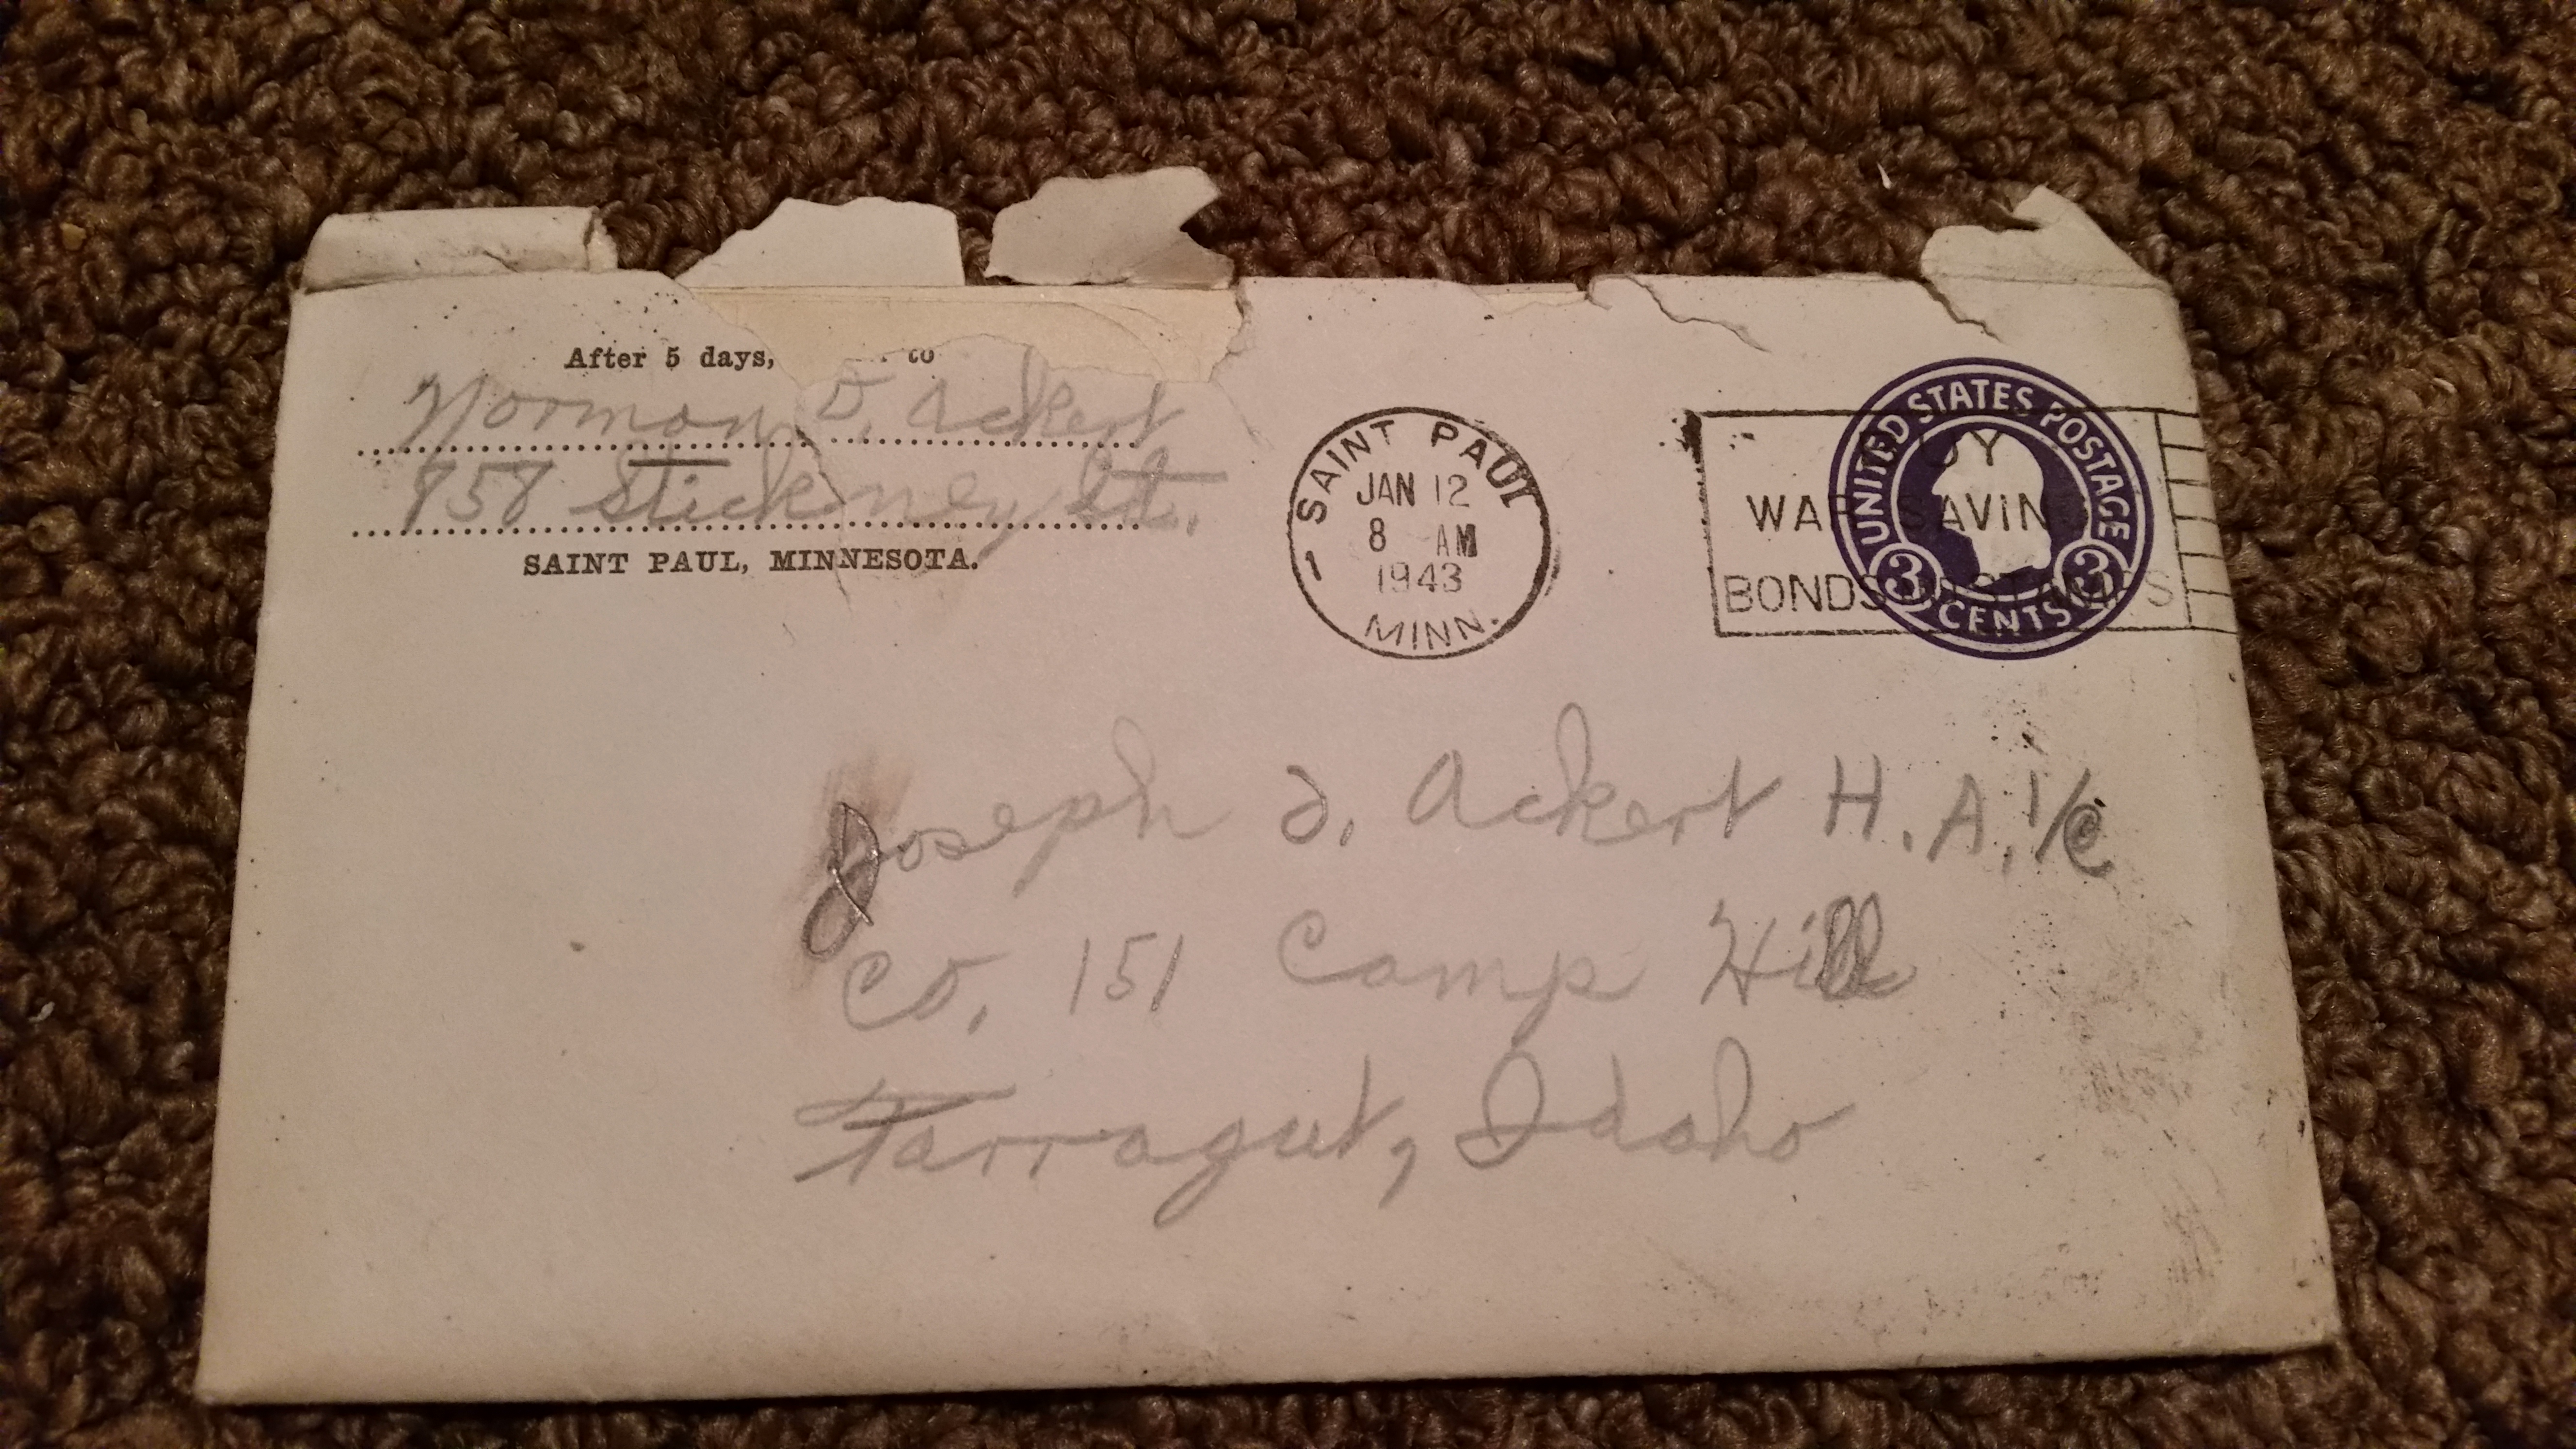 After 5 days, to
Norman D. Ackert
958 Stickney St.
SAINT PAUL, MINNESOTA.
SAINT PAUL
JAN 12
8 AM
1943
1
MINN.
UY
WAR SAVINGS
BONDS STAMPS
UNITED STATES POSTAGE
3 3
CENTS
Joseph D. Ackert H.A. 1/c
Co. 151 Camp Hill
Farragut, Idaho